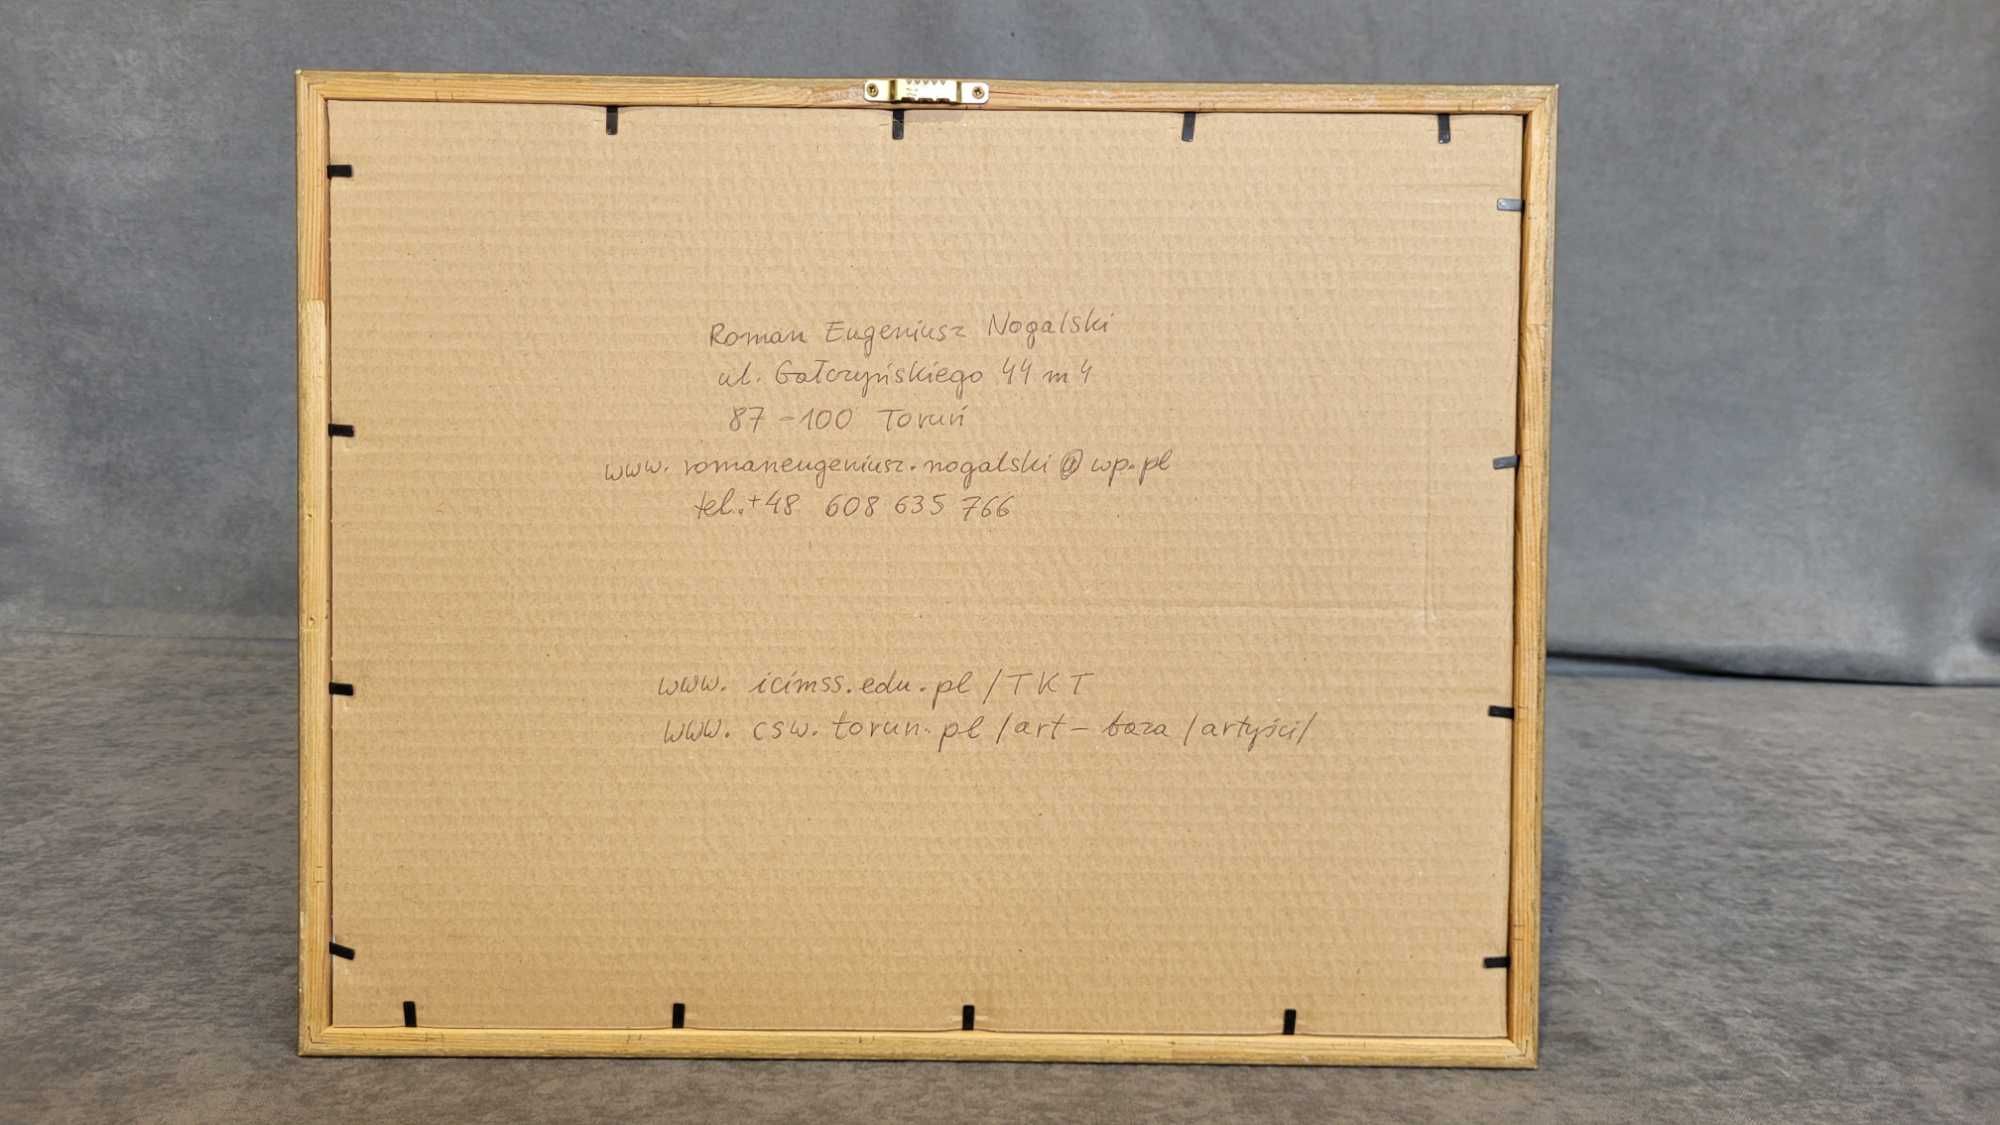 Roman Eugeniusz Nogalski
ul. Gałczyńskiego 44 m 4
87-100 Toruń
www. romaneugeniusz.nogalski@wp.pl
tel.+48 608 635 766
www. icimss.edu.pl/TKT
www. csw.torun.pl/art-baza/artyści/